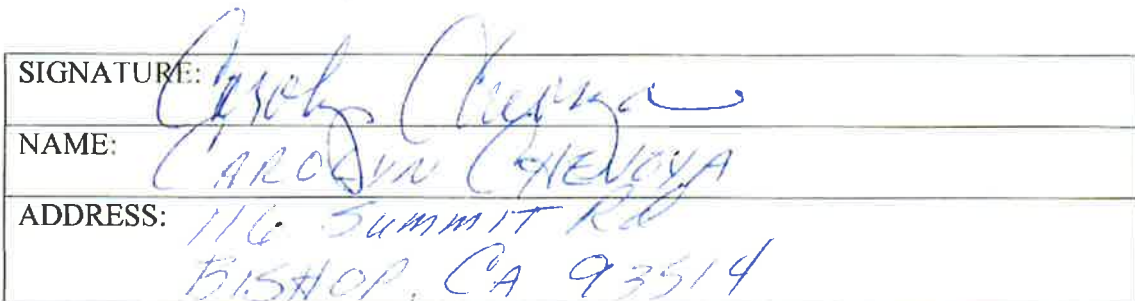 SIGNATURE: Carolyn Chenoya
NAME: CAROLYN CHENOYA
ADDRESS: 116 SUMMIT Rd
BISHOP, CA 93514